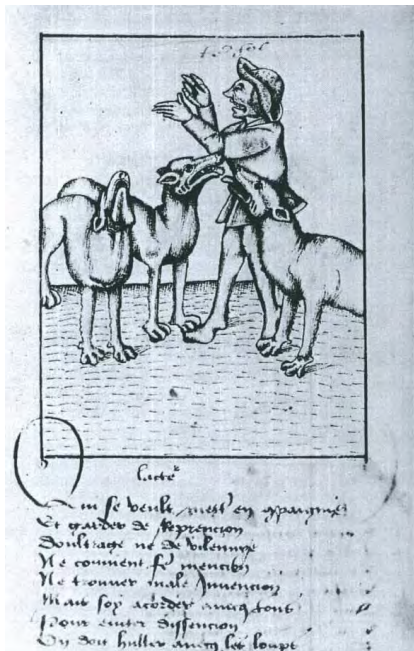 lacte^r
Qui se veult mest^r en compaignie
Et garder de Reprencion
Doultrage ne de vilennye
Ne comment f^r mencion
Ne trouuer male Inuencion
Mais soy acorder auecq tous
Pour euiter dissencion
On doit huller auecq les loupz